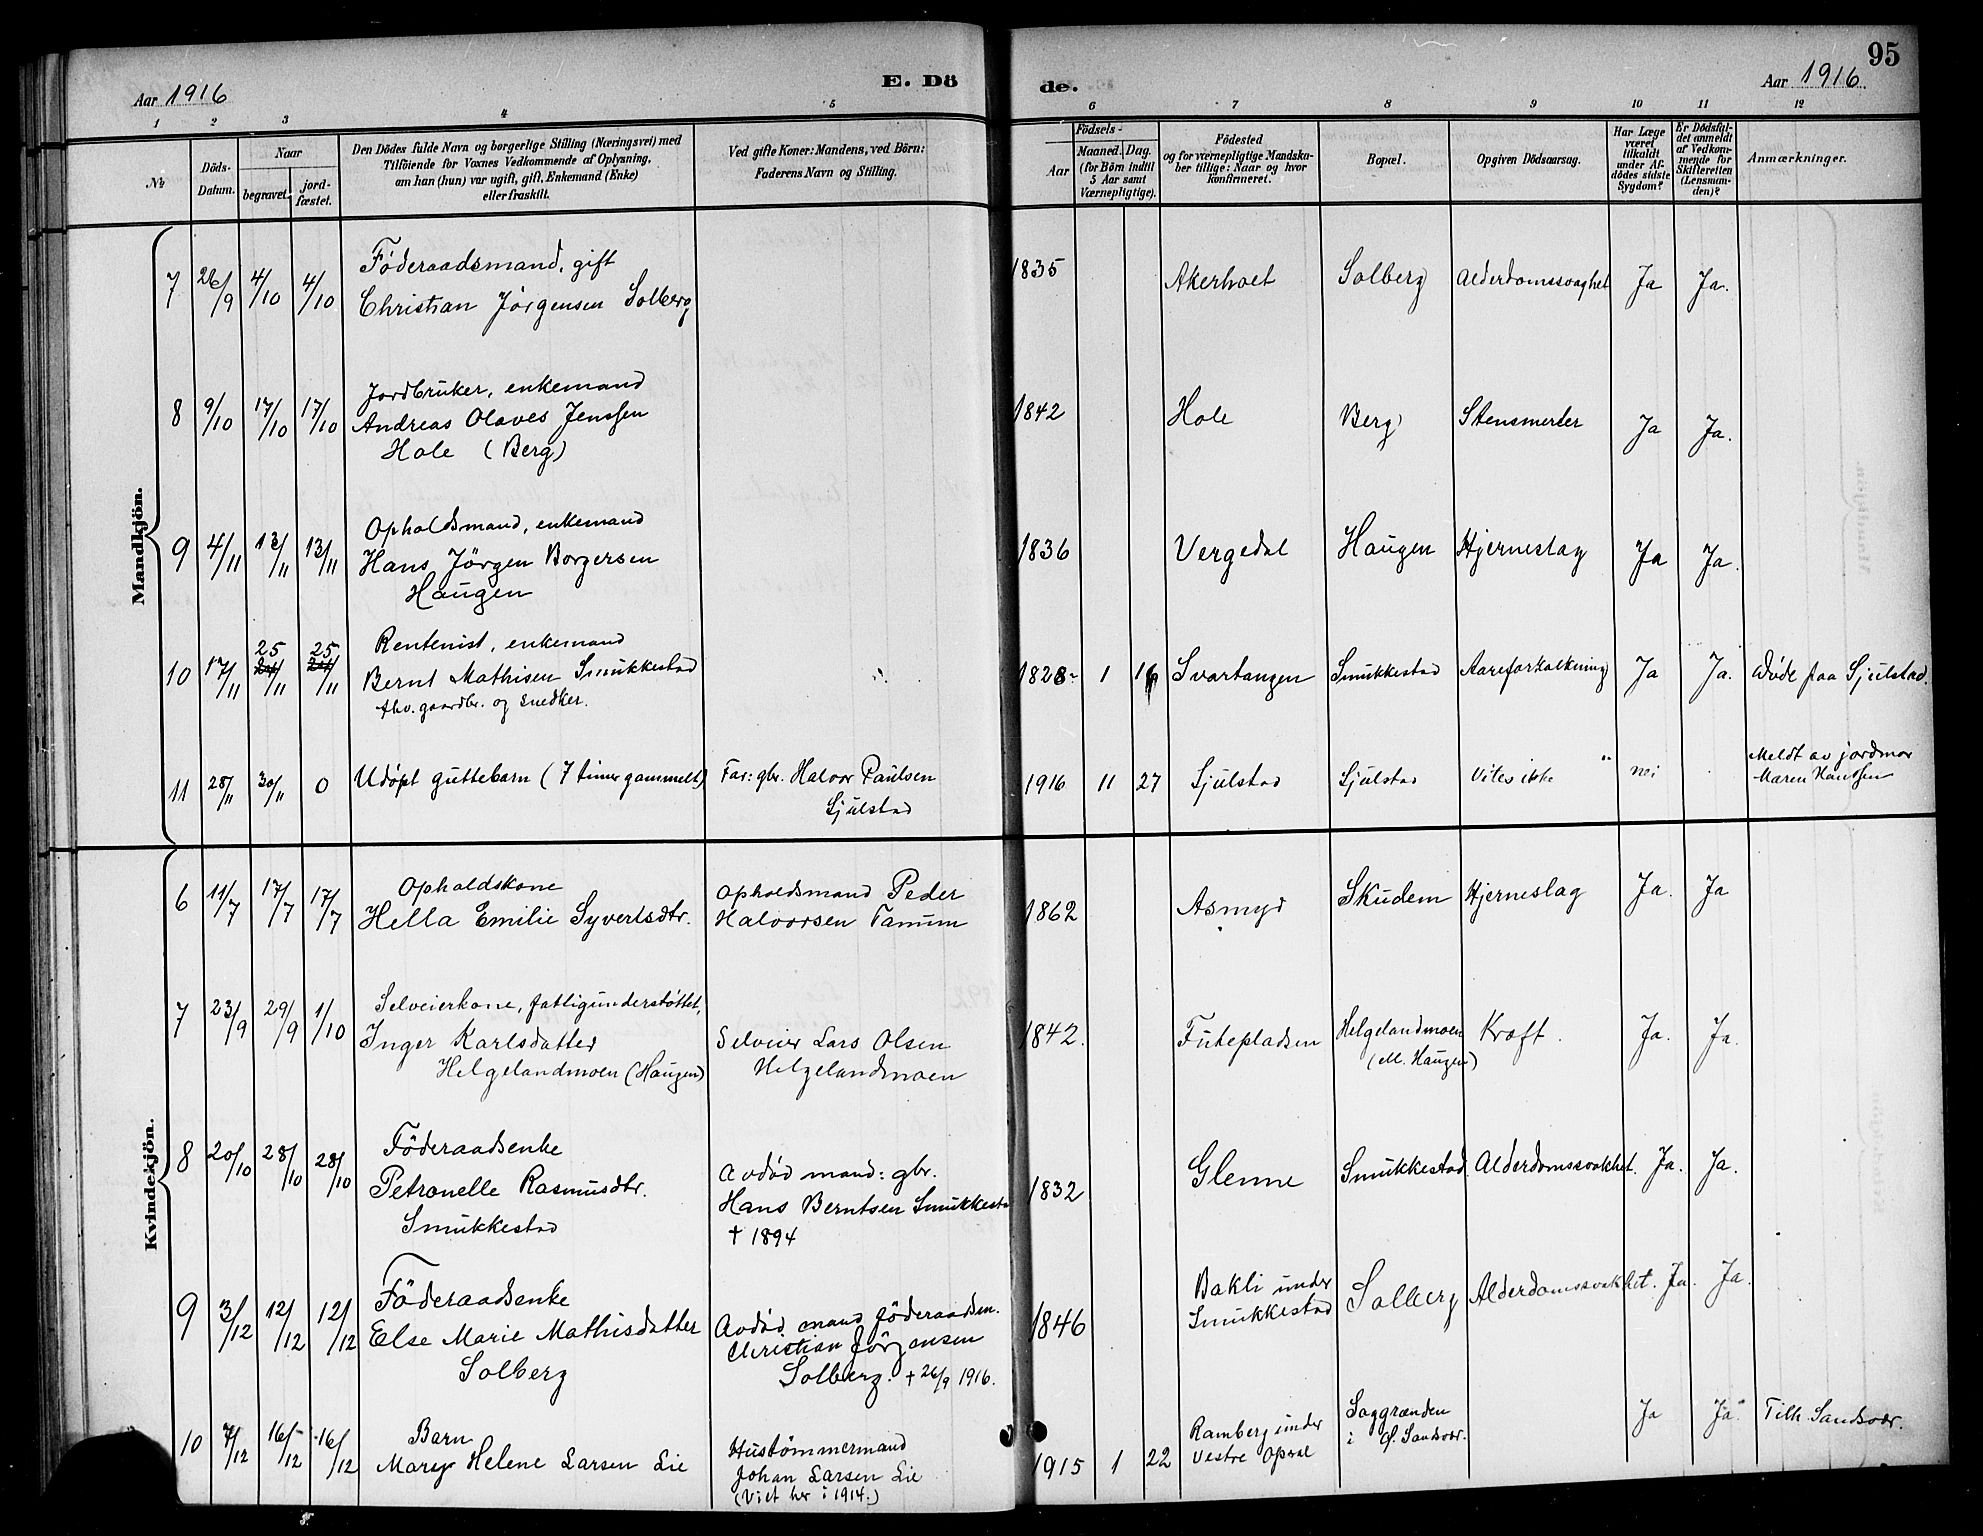 95
Aar 1916
E. Dö
de.
Aar 1916
1 2 3 4 5 6 7 8 9 10 11 12
№
Döds-
Datum.
Naar
begravet.
jord-
fæstet.
Den Dödes fulde Navn og borgerlige Stilling (Næringsvei) med
Tilföiende for Voxnes Vedkommende af Oplysning,
om han (hun) var ugift, gift, Enkemand (Enke)
eller fraskilt.
Ved gifte Koner: Mandens, ved Börn:
Faderens Navn og Stilling.
Födsels-
Aar
Maaned. Dag.
(for Börn indtil
5 Aar samt
Værnepligtige).
Födested
og for værnepligtige Mandska-
ber tillige: Naar og hvor
konfirmeret.
Bopæl.
Opgiven Dödsaarsag.
Har Læge
været
tilkaldt
under Af-
dödes sidste
Sygdom?
Er Dödsfal-
det anmeldt
af Vedkom-
mende for
Skifteretten
(Lensman-
den)?
Anmærkninger.
Mandkjön.
7 26/9 4/10 4/10
Föderaadsmand, gift
Christian Jörgensen Solberg
1835 Akerholt Solberg Alderdomssvaghet Ja Ja.
8 9/10 17/10 17/10
Jordbruker, enkemand
Andreas Olaves Jenssen
Hole (Berg)
1842 Hole Berg Stensmerter Ja Ja.
9 4/11 13/11 13/11
Opholdsmand, enkemand
Hans Jörgen Borgersen
Haugen
1836 Vergedal Haugen Hjerneslag Ja Ja.
10 17/11 25/11 25/11
Rentenist, enkemand
Bernt Mathisen Smukkestad
fhv. gaardbr. og snedker.
1828 1 16 Svartangen Smukkestad Aareforkalkning Ja Ja. Døde paa Sjulstad.
11 28/11 30/11 0
Udøpt guttebarn (7 timer gammelt)
Far: gbr. Halvor Paulsen
Sjulstad
1916 11 27 Sjulstad Sjulstad Vites ikke nei
Meldt av jordmor
Maren Hanssen
Kvindekjön.
6 11/7 17/7 17/7
Opholdskone
Hella Emilie Syvertsdtr.
Opholdsmand Peder
Halvorsen Tanum
1862 Asmyr Skudem Hjerneslag Ja. Ja
7 23/9 29/9 1/10
Selveierkone, fattigunderstøttet,
Inger Karlsdatter
Helgelandmoen (Haugen)
Selveier Lars Olsen
Helgelandmoen
1842. Futepladsen
Helgelandmoen
(M. Haugen)
Kræft. Ja. Ja.
8 20/10 28/10 28/10
Föderaadsenke
Petronelle Rasmusdtr.
Smukkestad
Avdød mand: gbr.
Hans Berntsen Smukkesta
† 1894
1832 Glenne Smukkestad Alderdomssvakhet. Ja. Ja.
9 3/12 12/12 12/12
Föderaadsenke
Else Marie Mathisdatter
Solberg
Avdød mand föderaadsm.
Christian Jörgensen
Solberg. † 26/9 1916.
1846
Bakli under
Smukkestad
Solberg Alderdomssvakhet. Ja. Ja.
10 7/12 16/12 16/12
Barn
Mary Helene Larsen Lie
Hustömmermand
Johan Larsen Lie
(Viet her i 1914.)
1915 1 22
Ramberg under
Vestre Opsal
Saggrænden
i Ø. Sandsvær.
Ja Ja Tilh. Sandsvær.